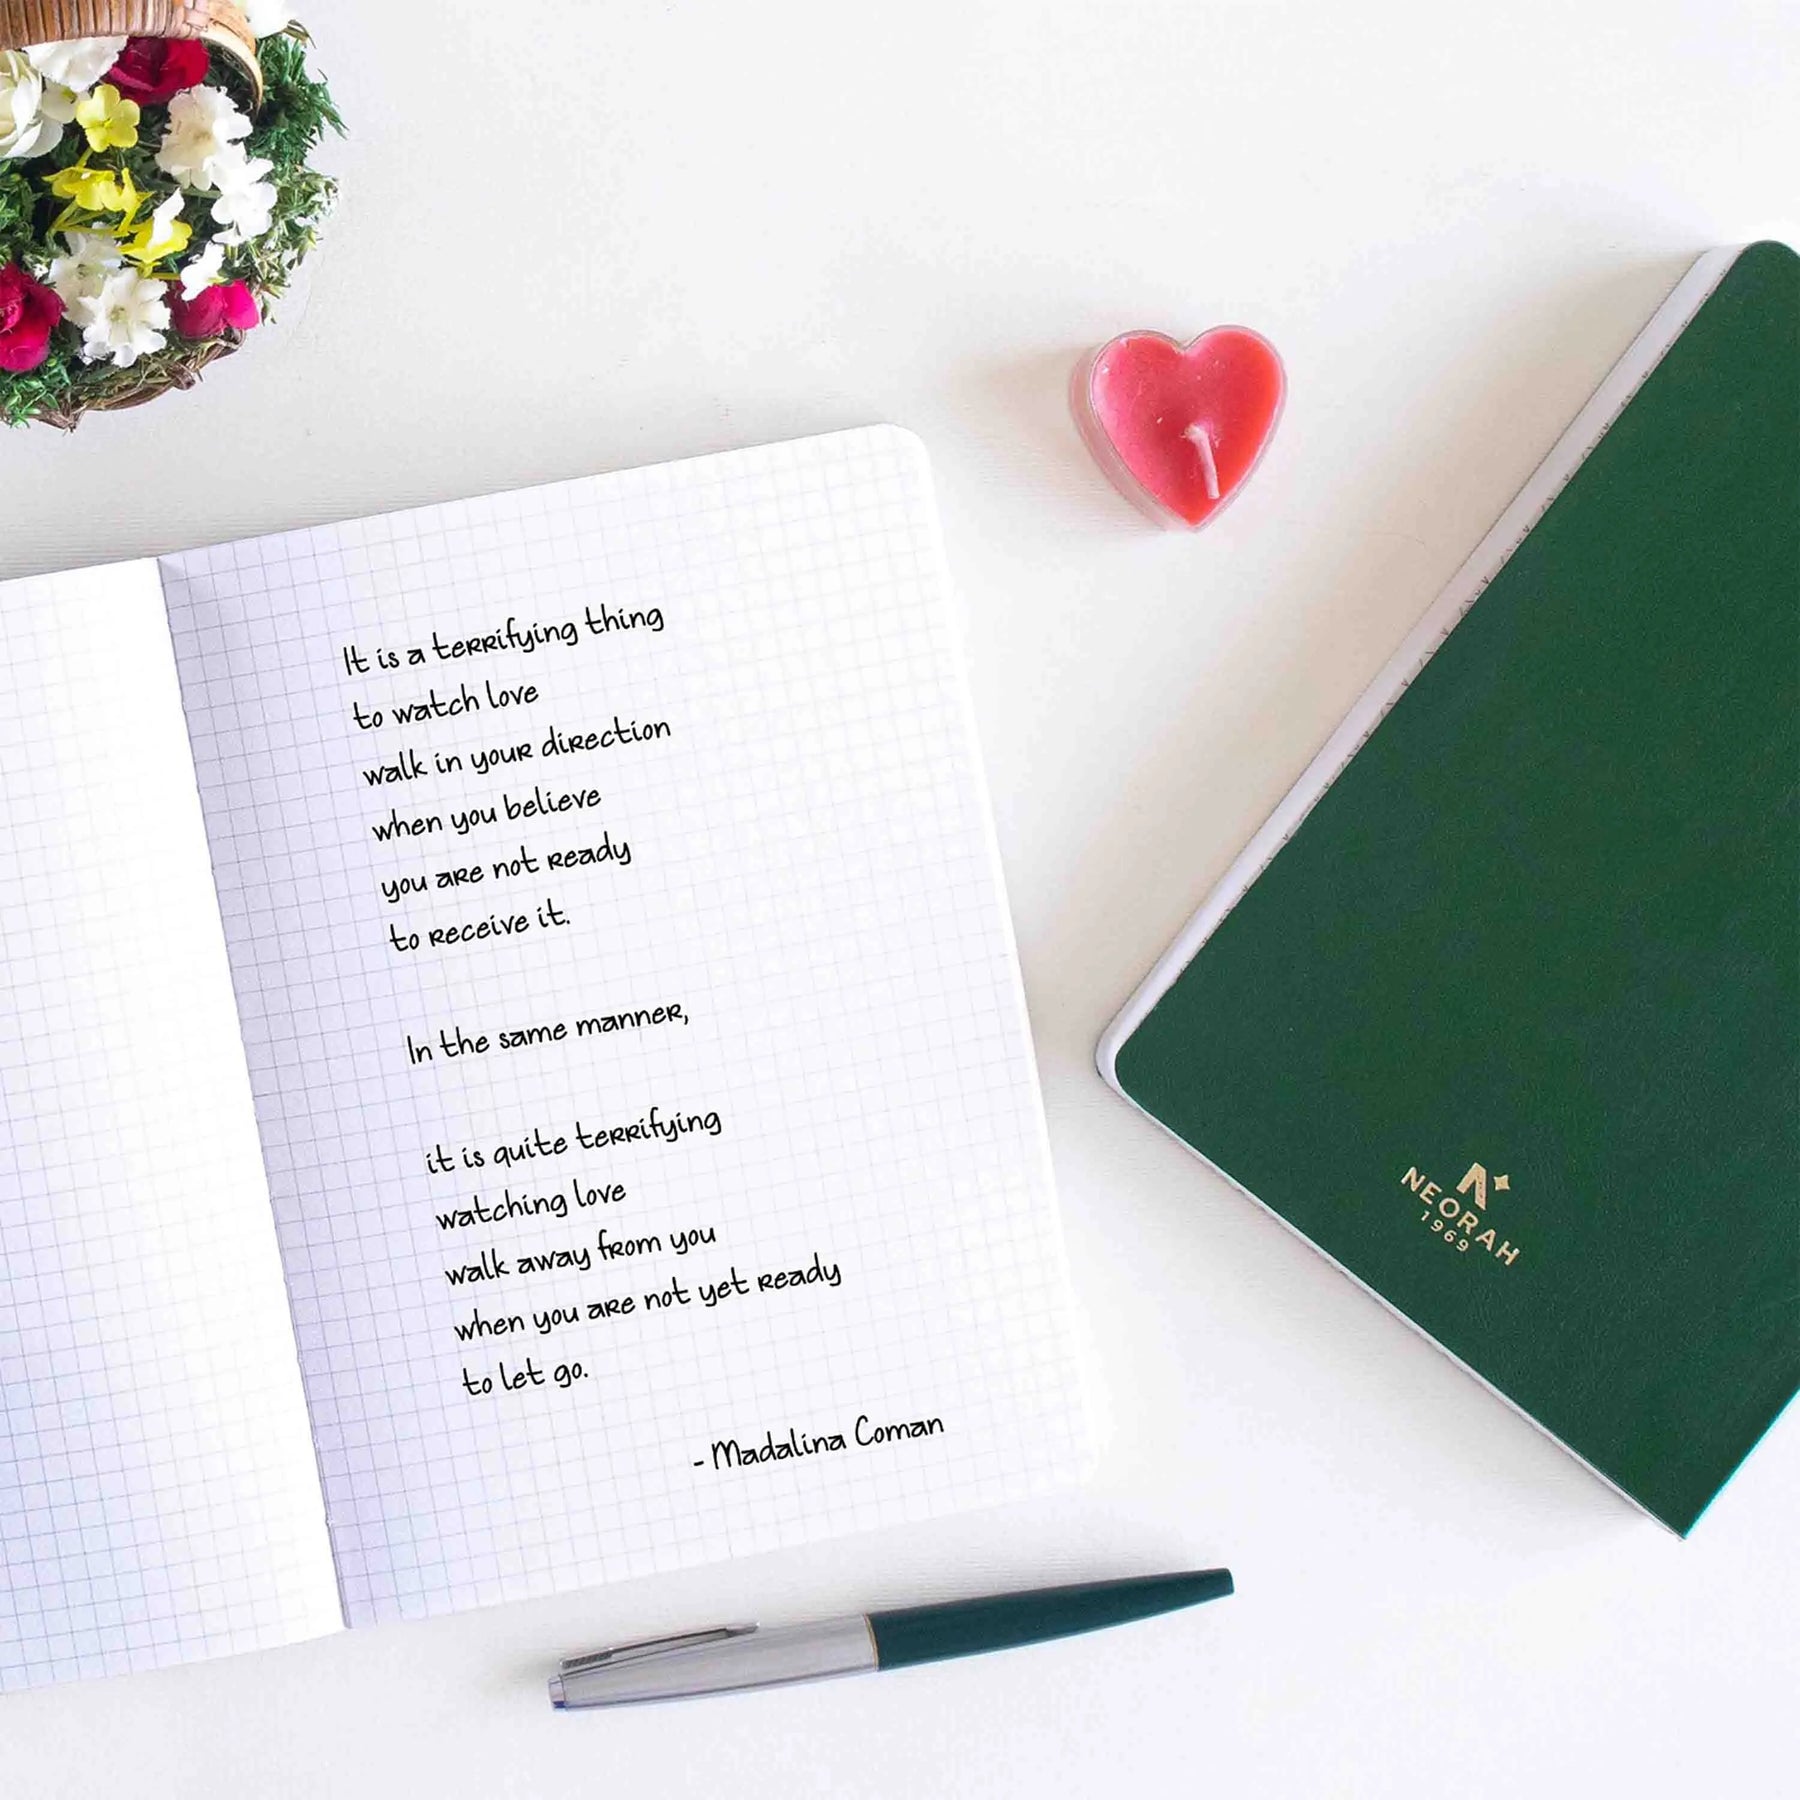 It is a terrifying thing
to watch love
walk in your direction
when you believe
you are not ready
to receive it.
In the same manner,
it is quite terrifying
watching love
walk away from you
when you are not yet ready
to let go.
- Madalina Coman
NEORAH
1969